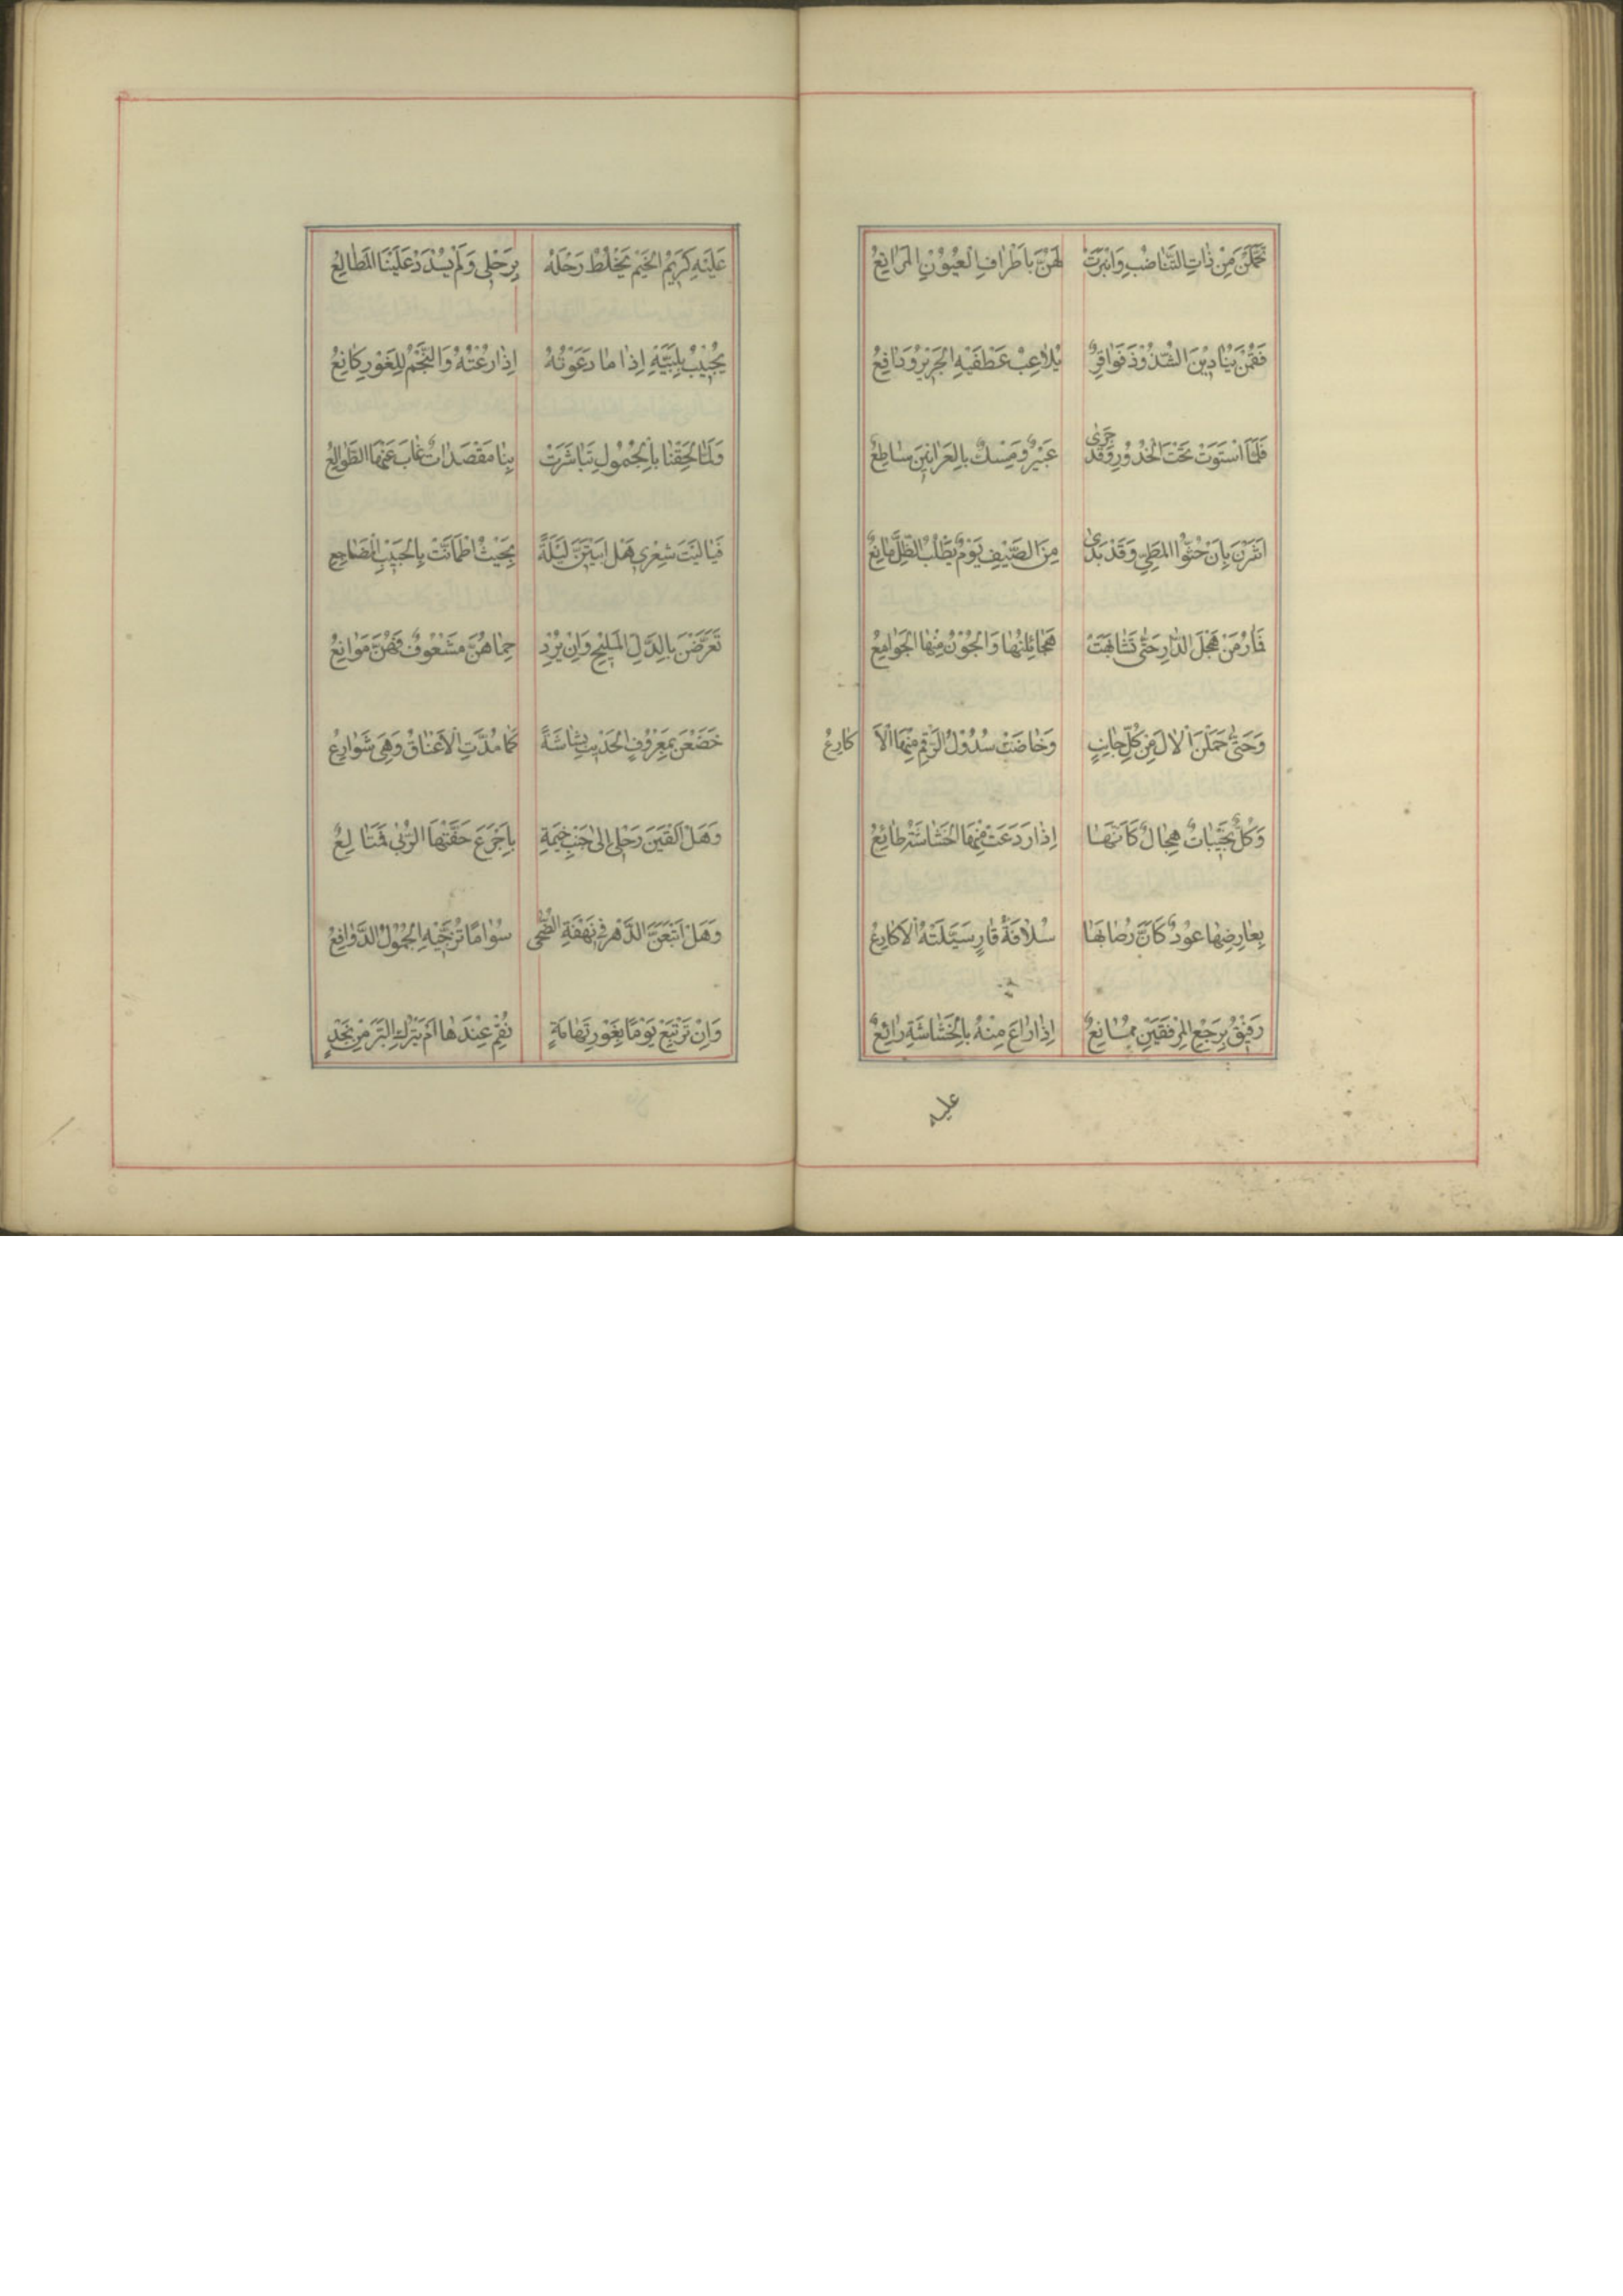 تَحَمَّلْنَ مِنْ ذَاتِ التَّنَاضُبِ وَانْبَرَتْ لَهُنَّ بِاَطْرَافِ الْعُيُوْنِ الْمَرَانِعُ
فَقُمْنَ يُنَادِيْنَ الشُّذُوْذَ فَوَاقِرٌ يُلَاعِبُ عَطْفَيْهِ الْجَرِيْرُ وَدَافِعُ
فَلَمَّا اسْتَوَتْ تَحْتَ الْخُدُوْرِ وَقَدْ جَرٰى عَبِيْرٌ وَمِسْكٌ بِالْعَرَانِيْنَ سَاطِعُ
اَشَرْنَ بِاَنْ حُثُّوا الْمَطِيَّ وَقَدْ بَدٰى مِنَ الصَّيْفِ يَوْمٌ يَطْلُبُ الظِّلَّ مَانِعُ
هَجْلَ الدَّارِ حَتّٰى تَشَابَهَتْ هَجَائِنُهَا وَالْجُوْنُ مِنْهَا الْجَوَامِعُ
وَحَتّٰى حَمَلْنَ الْاٰلَ مِنْ كُلِّ جَانِبٍ وَخَاضَتْ سُدُوْلُ الرَّقْمِ مِنْهَا الْاَكَارِعُ
وَكُلُّ نَجِيْبَاتٌ هِجَالٌ كَاَنَّهَا اِذَا رَدَعَتْ مِنْهَا الْخَشَاشَةُ طَائِعُ
بِعَارِضِهَا عُوْدٌ كَاَنَّ رُضَابَهَا سُلَافَةُ قَارٍ سَيَّلَتْهُ الْاَكَارِعُ
رَفِيْقٌ بِرَجْعِ الْمِرْفَقَيْنِ مُمَانِعٌ اِذَا رَاعَ مِنْهُ بِالْخَشَاشَةِ رَائِعُ
عليه
عَلَيْهِ كَرِيْمُ الْخِيْمِ يَخْلِطُ رَحْلَهُ بِرَحْلِى وَلَمْ يُسْدَدْ عَلَيْنَا الْمَطَالِعُ
يُجِيْبُ بِلَبَّيْهِ اِذَا مَا دَعَوْتُهُ اِذَا رُعْتُهُ وَالنَّجْمُ لِلْغَوْرِ كَانِعُ
وَلَمَّا لَحِقْنَا بِالْحُمُوْلِ تَبَاشَرَتْ بِنَا مَقْصَدَاتٌ غَابَ عَنْهَا الطَّوَالِعُ
فَيَا لَيْتَ شِعْرِى هَلْ اَبِيْتَنَّ لَيْلَةً بِحَيْثُ اطْمَاَنَّتْ بِالْحَبِيْبِ الْمَضَاجِعِ
تَعَرَّضْنَ بِالدَّلِّ الْمَلِيْحِ وَاِنْ يُرِدْ حِمَاهُنَّ مَشْعُوْفٌ فَهُنَّ مَوَانِعُ
خَضَعْنَ بِمَعْرُوْفِ الْحَدِيْثِ بَشَاشَةً كَمَا مُدَّتِ الْاَعْنَاقُ وَهِىَ شَوَارِعُ
وَهَلْ اُلْقِيَنَّ رَحْلِى اِلٰى جَنْبِ خَيْمَةٍ بِاَجْرَعَ حَفَّتْهَا الرُّبٰى فَمَتَالِعُ
وَهَلْ اَتْبَعَنَّ الدَّهْرَ فِى نَهْضَةِ الضُّحٰى سَوَامًا تُرَجِّيْهِ الْحُمُوْلُ الدَّوَافِعُ
وَاِنْ تَرْتَبِعْ يَوْمًا بِغَوْرِ تِهَامَةٍ نُقِمْ عِنْدَهَا